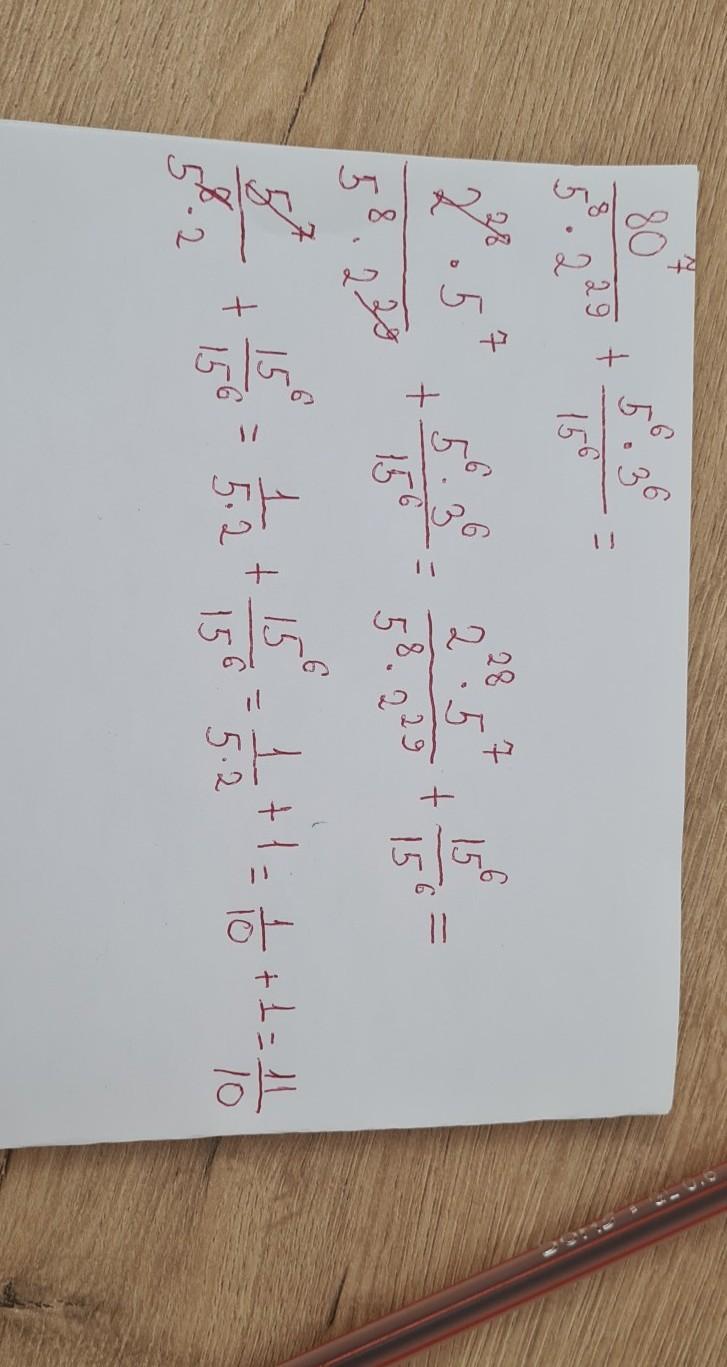 80⁷/(5⁸ · 2²⁹) + (5⁶ · 3⁶)/15⁶ =
(2²⁸ · 5⁷)/(5⁸ · 2²⁹) + (5⁶ · 3⁶)/15⁶ = (2²⁸ · 5⁷)/(5⁸ · 2²⁹) + 15⁶/15⁶ =
5⁷/(5⁸ · 2) + 15⁶/15⁶ = 1/(5·2) + 15⁶/15⁶ = 1/(5·2) + 1 = 1/10 + 1 = 11/10